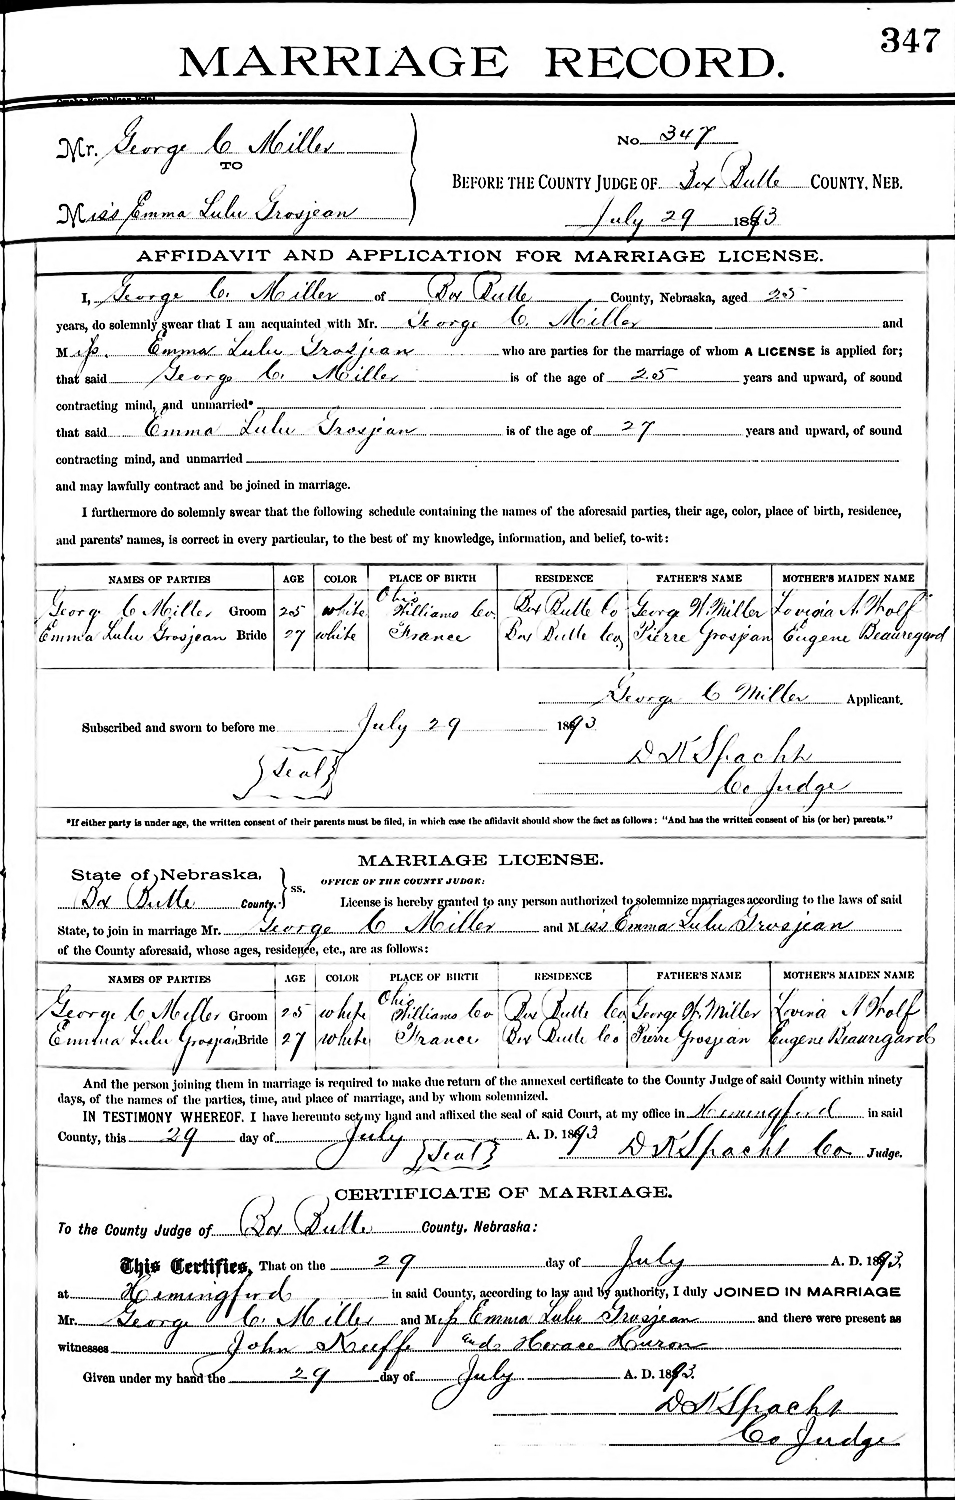 347
MARRIAGE RECORD.
Omaha Republican Print
Mr. George C Miller
TO
Miss Emma Lulu Grosjean
No. 347
BEFORE THE COUNTY JUDGE OF Box Butte COUNTY, NEB.
July 29 1893
AFFIDAVIT AND APPLICATION FOR MARRIAGE LICENSE.
I, George C. Miller of Box Butte County, Nebraska, aged 25
years, do solemnly swear that I am acquainted with Mr. George C. Miller and
Miss. Emma Lulu Grosjean who are parties for the marriage of whom A LICENSE is applied for;
that said George C. Miller is of the age of 25 years and upward, of sound
contracting mind, and unmarried*
that said Emma Lulu Grosjean is of the age of 27 years and upward, of sound
contracting mind, and unmarried
and may lawfully contract and be joined in marriage.
I furthermore do solemnly swear that the following schedule containing the names of the aforesaid parties, their age, color, place of birth, residence,
and parents' names, is correct in every particular, to the best of my knowledge, information, and belief, to-wit:
NAMES OF PARTIES AGE COLOR PLACE OF BIRTH RESIDENCE FATHER'S NAME MOTHER'S MAIDEN NAME
George C Miller Groom 25 white Ohio Williams Co. Box Butte Co George W. Miller Lovina A. Wolf
Emma Lulu Grosjean Bride 27 white France Box Butte Co, Pierre Grosjean Eugene Beauregard
George C Miller Applicant.
Subscribed and sworn to before me July 29 1893
{Seal}
D K Spacht
Co Judge
*If either party is under age, the written consent of their parents must be filed, in which case the affidavit should show the fact as follows: "And has the written consent of his (or her) parents."
MARRIAGE LICENSE.
State of Nebraska,
Box Butte County. } ss.
OFFICE OF THE COUNTY JUDGE:
License is hereby granted to any person authorized to solemnize marriages according to the laws of said
State, to join in marriage Mr. George C Miller and Miss Emma Lulu Grosjean
of the County aforesaid, whose ages, residence, etc., are as follows:
NAMES OF PARTIES AGE COLOR PLACE OF BIRTH RESIDENCE FATHER'S NAME MOTHER'S MAIDEN NAME
George C Miller Groom 25 white Ohio Williams Co Box Butte Co George W. Miller Lovina A Wolf
Emma Lulu Grosjean Bride 27 white France Box Butte Co Pierre Grosjean Eugene Beauregard
And the person joining them in marriage is required to make due return of the annexed certificate to the County Judge of said County within ninety
days, of the names of the parties, time, and place of marriage, and by whom solemnized.
IN TESTIMONY WHEREOF. I have hereunto set my hand and affixed the seal of said Court, at my office in Hemingford in said
County, this 29 day of July A. D. 1893
{Seal} D K Spacht Co Judge.
CERTIFICATE OF MARRIAGE.
To the County Judge of Box Butte County, Nebraska:
This Certifies, That on the 29 day of July A. D. 1893.
at Hemingford in said County, according to law and by authority, I duly JOINED IN MARRIAGE
Mr. George C. Miller and Miss Emma Lulu Grosjean and there were present as
witnesses John Keeffe and Horace Huron
Given under my hand the 29 day of July A. D. 1893.
D K Spacht
Co Judge